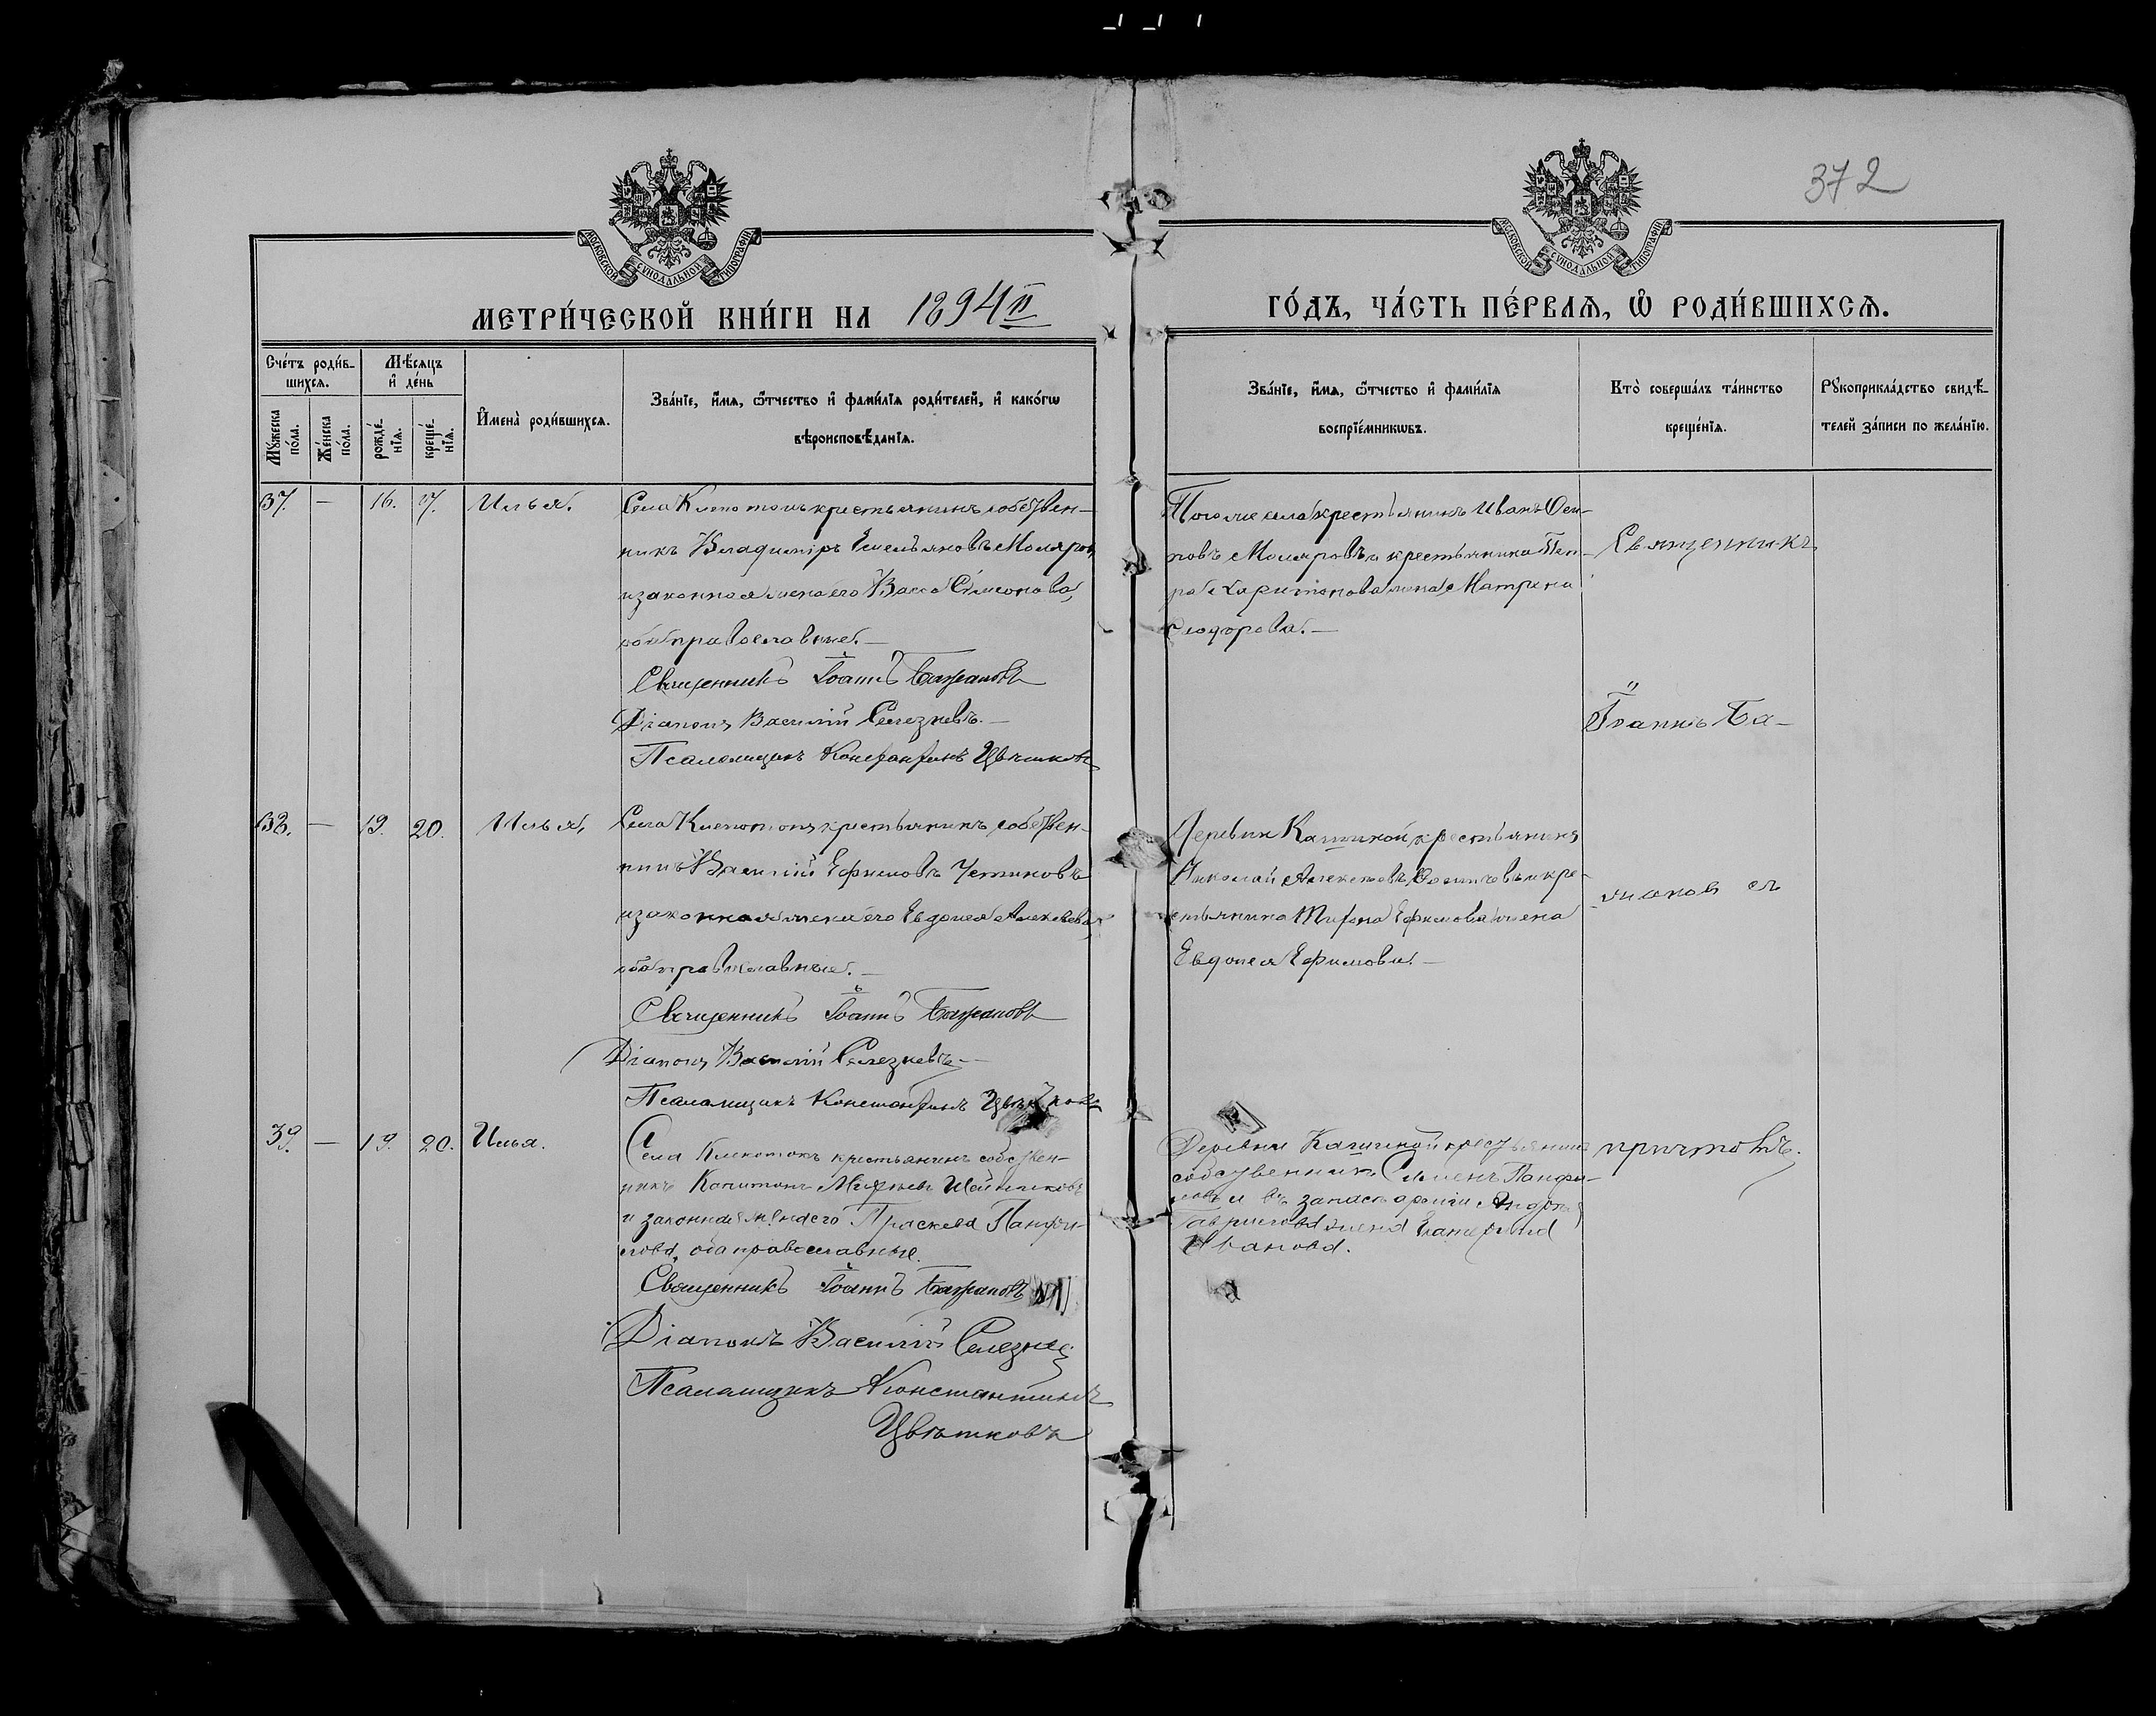 372
МОСКОВСКОЙ СУНОДАЛЬНОЙ ТИПОГРАФІИ
МОСКОВСКОЙ СУНОДАЛЬНОЙ ТИПОГРАФІИ
МЕТРИ́ЧЕСКОЙ КНИ́ГИ НА 1894й
ГО́ДЪ, ЧА́СТЬ ПЕ́РВАЯ, Ѡ РОДИ́ВШИХСЯ.
Сче́тъ роди́в-
шихся.
Мѣ́сяцъ
и де́нь
Мꙋ́жеска
по́ла.
Же́нска
по́ла.
рожде́-
нїя.
креще́-
нїя.
Имена̀ роди́вшихся.
Зва́нїе, и́мя, ѻ́тчество и фами́лїя роди́телей, и како́гѡ
вѣроисповѣ́данїя.
Зва́нїе, и́мя, ѻ́тчество и фами́лїя
воспрїе́мникѡвъ.
Кто̀ соверша́лъ та́инство
креще́нїя.
Рꙋкоприкла́дство свидѣ́-
телей за́писи по жела́нїю.
37. — 16. 17. Илья.
Села Клекотокъ крестьянинъ собствен-
никъ Владиміръ Емельяновъ Моляровъ
и законная жена его Васса Симонова,
оба православные. —
Священникъ Іоаннъ Бажановъ
Діаконъ Василій Селезневъ. —
Псаломщикъ Константинъ Цвѣтковъ
Того же села крестьянинъ Иванъ Оси-
повъ Моляровъ и крестьянина
Харитонова жена Матрена
Феодорова. —
Священникъ
Іоаннъ Ба-
38. — 19. 20. Илья,
Села Клекотокъ крестьянинъ собствен-
никъ Василій Ефимовъ
и законная жена его Евдокея Алексѣева,
оба православные. —
Священникъ Іоаннъ Бажановъ
Діаконъ Василій Селезневъ —
Псаломщикъ Константинъ Цвѣтковъ
Деревни крестьянинъ
Николай Алексѣевъ и кре-
стьянина Ефимова жена
Евдокея Ефимова. —
жановъ съ
39. — 19. 20. Илья.
Села Клекотокъ крестьянинъ собствен-
никъ Капитонъ
и законная жена его Праскева Панфи-
лова, оба православные.
Священникъ Іоаннъ Бажановъ
Діаконъ Василій Селезневъ
Псаломщикъ Константинъ
Цвѣтковъ
Деревни крестьянинъ
собственникъ Семенъ Панфи-
ловъ и въ запасѣ арміи
Гаврилова жена Екатерина
Иванова.
причтомъ.